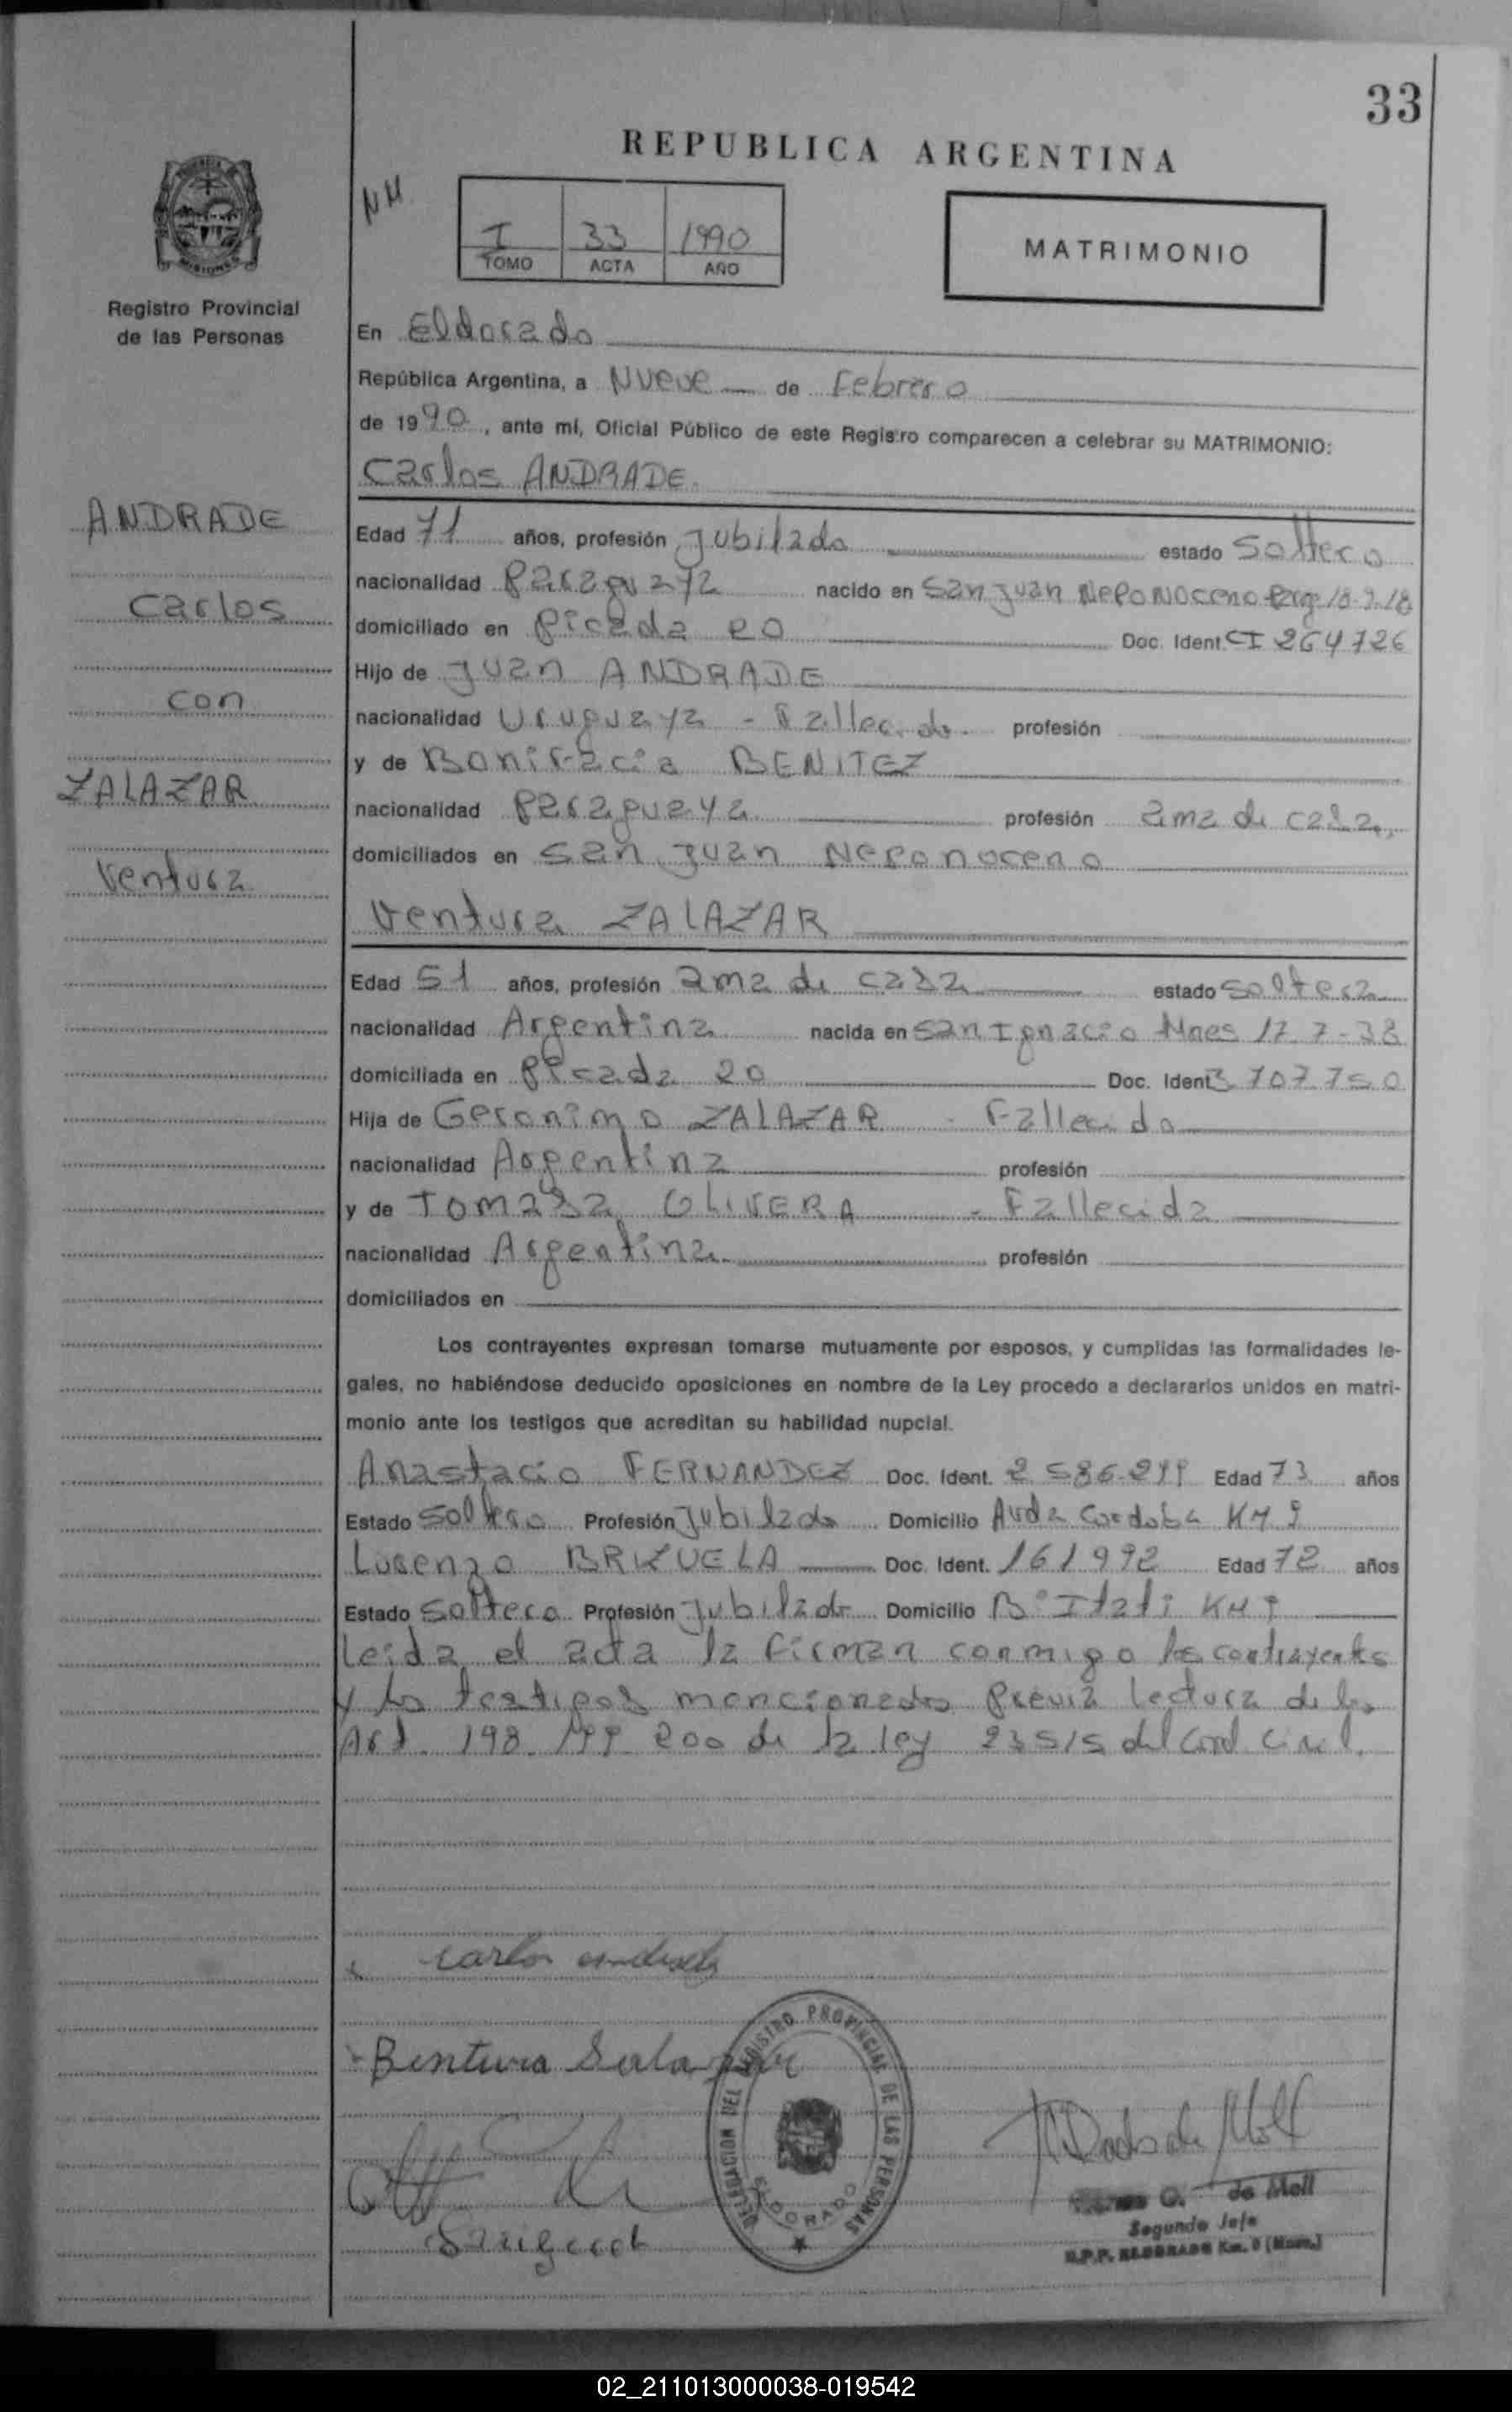 33
REPUBLICA ARGENTINA
I 33 1990
TOMO ACTA AÑO
MATRIMONIO
Registro Provincial
de las Personas
En Eldorado
República Argentina, a Nueve de Febrero
de 1990, ante mí, Oficial Público de este Registro comparecen a celebrar su MATRIMONIO:
Carlos ANDRADE
ANDRADE
Carlos
con
ZALAZAR
Ventura
Edad 71 años, profesión Jubilado estado Soltero
nacionalidad Paraguaya nacido en San Juan Neponoceno Parg 18-9-18
domiciliado en Picada 20 Doc. Ident. CI 264726
Hijo de Juan ANDRADE
nacionalidad Uruguaya - Fallecido profesión
y de Bonifacia BENITEZ
nacionalidad Paraguaya profesión ama de casa,
domiciliados en San Juan Neponoceno
Ventura ZALAZAR
Edad 51 años, profesión ama de casa estado soltera
nacionalidad Argentina nacida en San Ignacio Mnes 17-7-38
domiciliada en Picada 20 Doc. Ident 3 707 750
Hija de Geronimo ZALAZAR - Fallecido
nacionalidad Argentina profesión
y de Tomasa OLIVERA - Fallecida
nacionalidad Argentina profesión
domiciliados en
Los contrayentes expresan tomarse mutuamente por esposos, y cumplidas las formalidades le-
gales, no habiéndose deducido oposiciones en nombre de la Ley procedo a declararlos unidos en matri-
monio ante los testigos que acreditan su habilidad nupcial.
Anastacio FERNANDEZ Doc. Ident. 2 586 299 Edad 73 años
Estado Soltero Profesión Jubilado Domicilio Avda Cordoba KM 9
Lorenzo BRIZUELA Doc. Ident. 161992 Edad 72 años
Estado Soltero Profesión Jubilado Domicilio B° Itati KM 9
Leida el acta la firman conmigo los contrayentes
y los testigos mencionados previa lectura de los
Art. 198 199 200 de la ley 23515 del Cod Civil.
Carlos andrade
Bentura Salazar
DELEGACION DEL REGISTRO PROVINCIAL DE LAS PERSONAS
ELDORADO
G. de Moll
Segundo Jefe
R.P.P. ELDORADO Km. 9 (Mnes.)
02_211013000038-019542